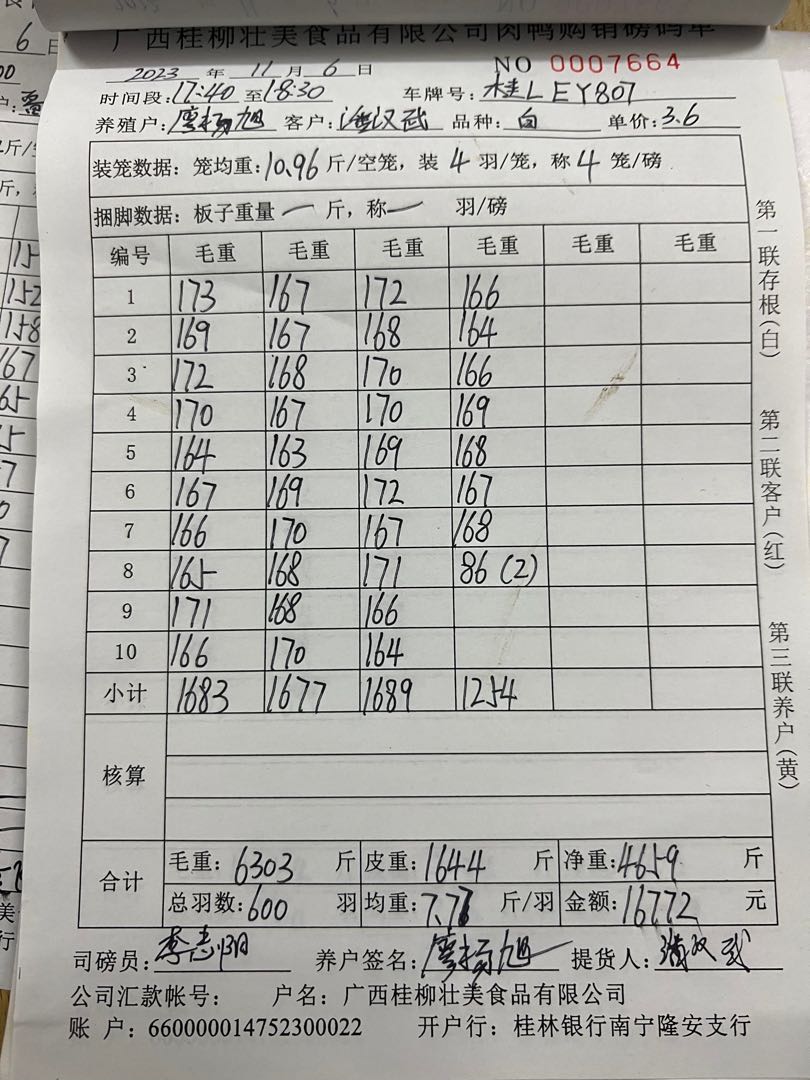 广西桂柳壮美食品有限公司肉鸭购销磅码单
2023 年 11 月 6 日 NO 0007664
时间段:17:40 至18:30 车牌号:桂L EY807
养殖户:廖扬旭 客户:潘汉武 品种:白 单价:3.6
装笼数据:笼均重:10.96 斤/空笼,装 4 羽/笼,称 4 笼/磅
捆脚数据:板子重量 一 斤,称一 羽/磅
编号 毛重 毛重 毛重 毛重 毛重 毛重
1 173 167 172 166
2 169 167 168 164
3 172 168 170 166
4 170 167 170 169
5 164 163 169 168
6 167 169 172 167
7 166 170 167 168
8 165 168 171 86 (2)
9 171 168 166
10 166 170 164
小计 1683 1677 1689 1254
核算
合计 毛重:6303 斤 皮重:1644 斤 净重:4659 斤
总羽数:600 羽 均重:7.77 斤/羽 金额:16772 元
司磅员:李志阳 养户签名:廖扬旭 提货人:潘汉武
公司汇款帐号: 户名:广西桂柳壮美食品有限公司
账 户:660000014752300022 开户行:桂林银行南宁隆安支行
第一联存根(白)
第二联客户(红)
第三联养户(黄)
6
152
158